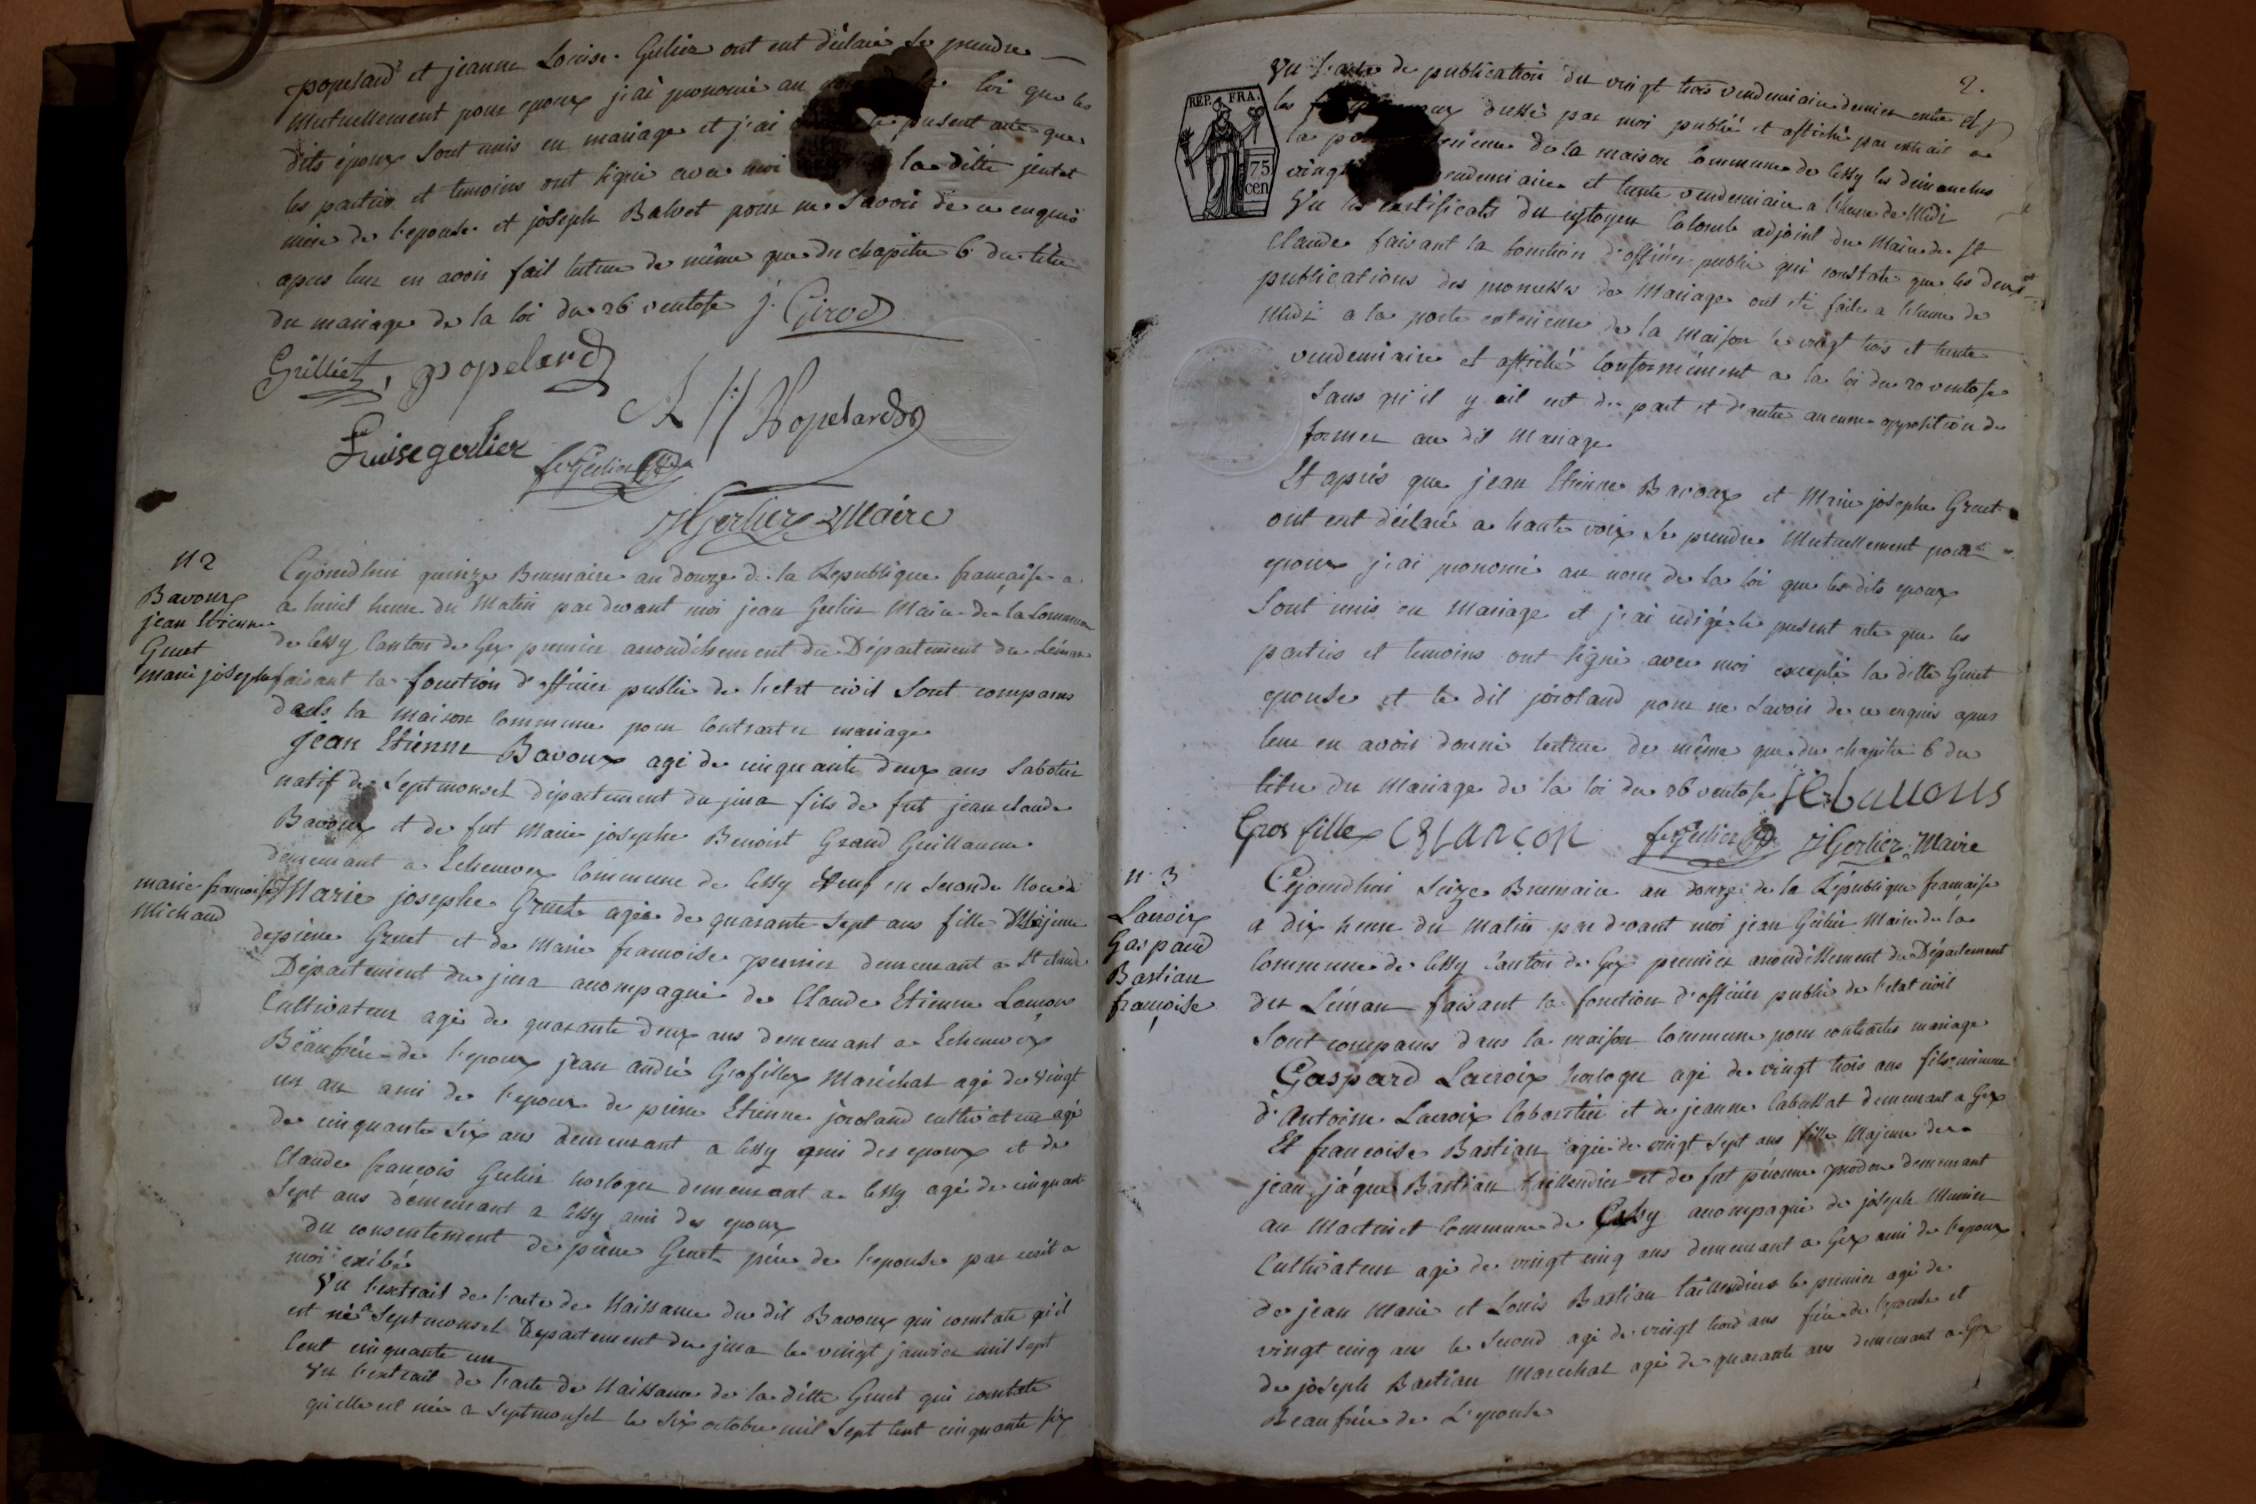 popelard et jeanne Louise Gerlier ont ent déclaré se prendre
mutuellement pour epoux j'ai prononcé au loi que les
dits époux sont unis en mariage et j'ai présent acte que
les parties et temoins ont signé avec moi la ditte jentet
mère de l'epouse et joseph Balvet pour ne savoir de ce enquis
apres leur en avoir fait lecture de même que du chapitre 6 du titre
du mariage de la loi du 26 ventose J. Girod
Grilliet, popelard
A Popelard
Louise gerlier
fs Gerlier
J Gerlier Maire
N 2
Bavoux
jean Etienne
Gruet
marie josephe
Cejourdhui quinze Brumaire an douze de la Republique française a
a huit heure du Matin par devant moi jean Gerlier Maire de la Commune
de Cessy Canton de Gex premier arrondissement du Département du Léman
faisant la fonction d'officier public de l'etat civil sont comparus
dans la maison commune pour contracter mariage
Jean Etienne Bavoux agé de cinquante deux ans Sabotier
natif de Septmonsel département du jura fils de fut jean claude
Bavoux et de fut Marie josephe Benoist Grand Guillaume
demeurant a Echenvex Commune de Cessy veuf en seconde Noce de
marie françoise
Michaud
Marie josephe Gruet agée de quarante sept ans fille Majeure
de pierre Gruet et de Marie françoise perrier demeurant a St Claude
Département du jura accompagné de Claude Etienne Lançon
Cultivateur agé de quarante deux ans demeurant a Echenvex
Beaufrère de l'epoux jean andré Grosfillex Maréchal agé de vingt
un an ami de l'epoux de pierre Etienne joroland cultivateur agé
de cinquante six ans demeurant a Cessy ami des epoux et de
Claude françois Gerlier horloger demeurant a Cessy agé de cinquante
sept ans demeurant a Cessy ami des epoux
du consentement de pierre Gruet père de l'epouse par ecrit a
moi exibé
Vu l'extrait de l'acte de Naissance du dit Bavoux qui constate qu'il
est né a Septmonsel Département du jura le vingt janvier mil sept
cent cinquante un
Vu l'extrait de l'acte de Naissance de la ditte Gruet qui constate
qu'elle est née a septmonsel le six octobre mil sept cent cinquante six
2.
REP. FRA.
75
cen
Vu l'acte de publication du vingt trois vendemiaire dernier entre
les dressé par moi publié et affiché par extrait a
la exterieure de la maison Commune de Cessy les dimanches
vingt vendemiaire et trente vendemiaire a l'heure de Midi
Vu les certificats du citoyen Colomb adjoint du Maire de St
Claude faisant la fonction d'officier public qui constate que les deux
publications des promesses de Mariage ont été faites a l'heure de
Midi a la porte exterieure de la maison le vingt trois et trente
vendemiaire et affiché conformément a la loi du 20 ventose
sans qu'il y ait eut de part et d'autre aucune opposition de
former au dit Mariage
Et après que jean Etienne Bavoux et Marie josephe Gruet
ont ent déclaré a haute voix se prendre Mutuellement pour
epoux j'ai prononcé au nom de la loi que les dits epoux
sont unis en Mariage et j'ai redigé le present acte que les
parties et temoins ont signé avec moi excepté la ditte Gruet
epouse et le dit joroland pour ne savoir de ce enquis apres
leur en avoir donné lecture de même que du chapitre 6 du
titre du Mariage de la loi du 26 ventose
Gros fillex C E LANÇON fs Gerlier J Gerlier Maire
N 3
Lacroix
Gaspard
Bastian
françoise
Cejourdhui seize Brumaire an douze de la République française
a dix heure du Matin par devant moi jean Gerlier Maire de la
Commune de Cessy Canton de Gex premier arrondissement du Département
du Léman faisant la fonction d'officier public de l'etat civil
sont comparus dans la maison commune pour contracter mariage
Gaspard Lacroix horloger agé de vingt trois ans fils mineur
d'Antoine Lacroix cabaretier et de jeanne demeurant a Gex
Et françoise Bastian agée de vingt sept ans fille Majeure de
jean jâque Bastian taillandier et de fut demeurant
au Martinet Commune de Cessy accompagné de joseph Munier
Cultivateur agé de vingt cinq ans demeurant a Gex ami de l'epoux
de jean Marie et Louis Bastian taillandiers le premier agé de
vingt cinq ans le second agé de vingt trois ans frère de l'epouse et
de joseph Bastian Marechal agé de quarante ans demeurant a Gex
Beaufrère de L'epouse